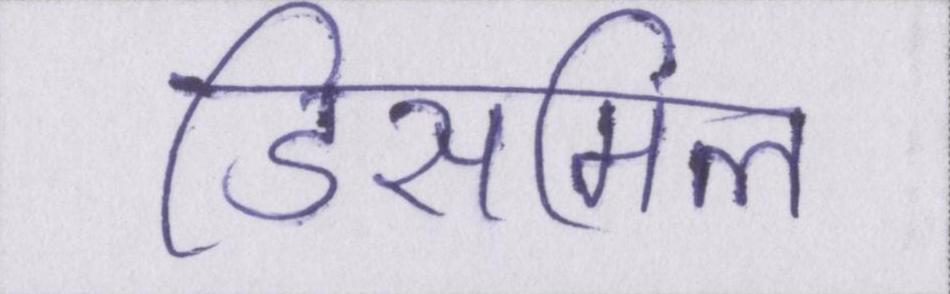 डिसमिंल